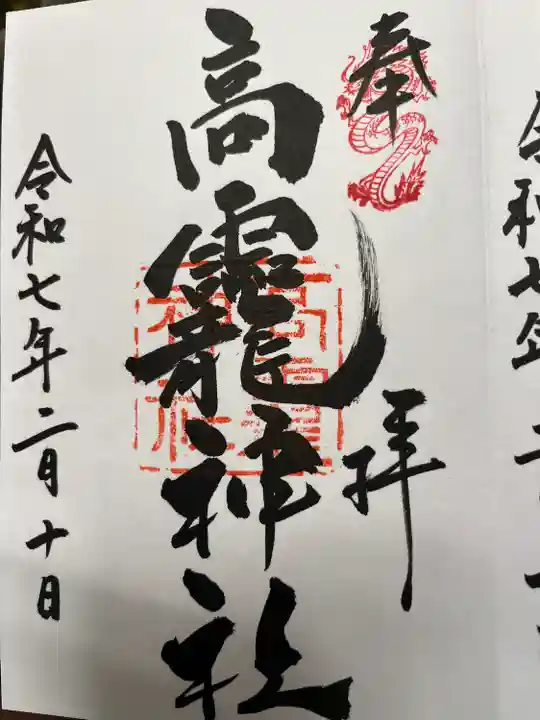 令和七年
奉拝
高龗神社
高龗神社
令和七年二月十日